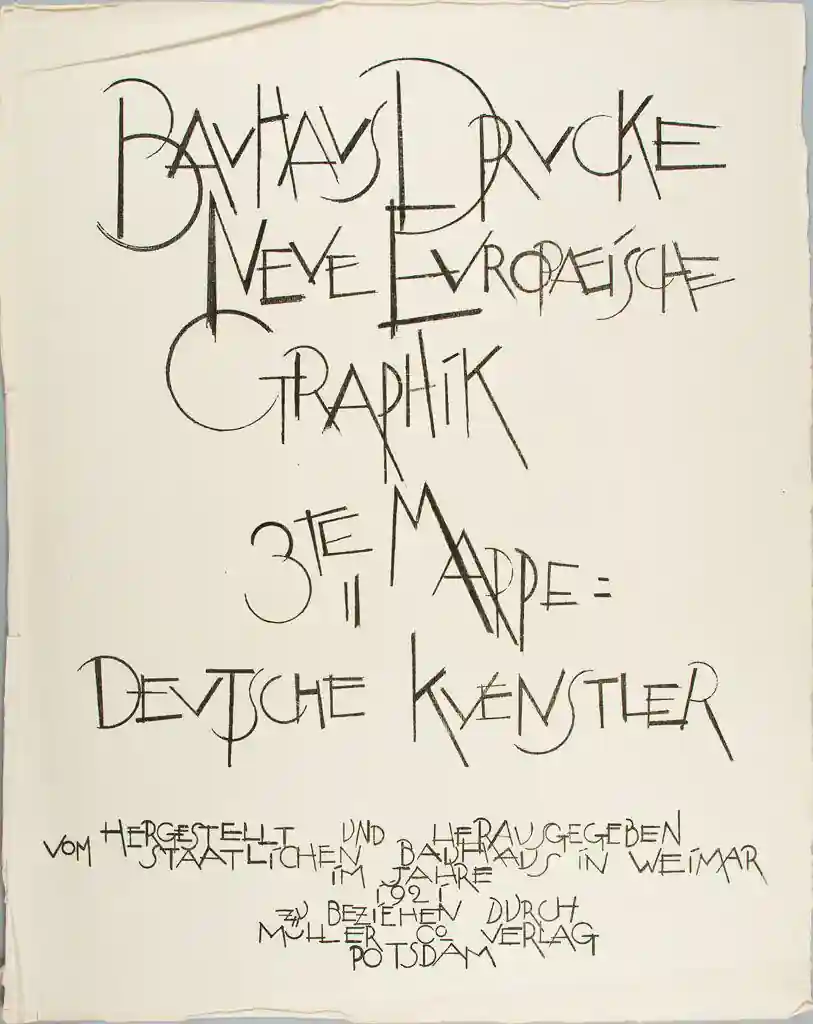 BAVHAVS DRVCKE
NEVE EVROPAEİSCHE
GRAPHİK
3TE MAPPE =
DEVTSCHE KVENSTLER
HERGESTELLT UND HERAUSGEGEBEN
VOM STAATLİCHEN BAUHAUS İN WEİMAR
İM JAHRE
1921
ZU BEZİEHEN DURCH
MÜLLER & CO VERLAG
POTSDAM